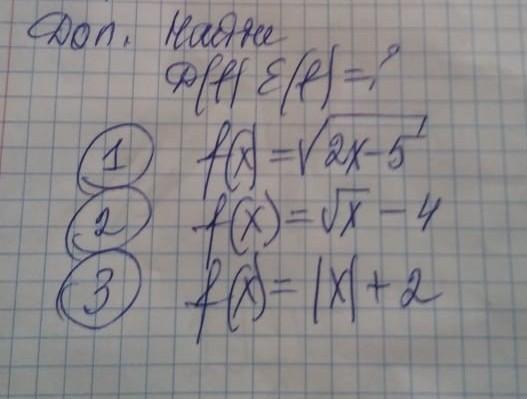 Доп. Найти
D(f) E(f)=?
1 f(x)=√2x-5
2 f(x)=√x-4
3 f(x)=|x|+2